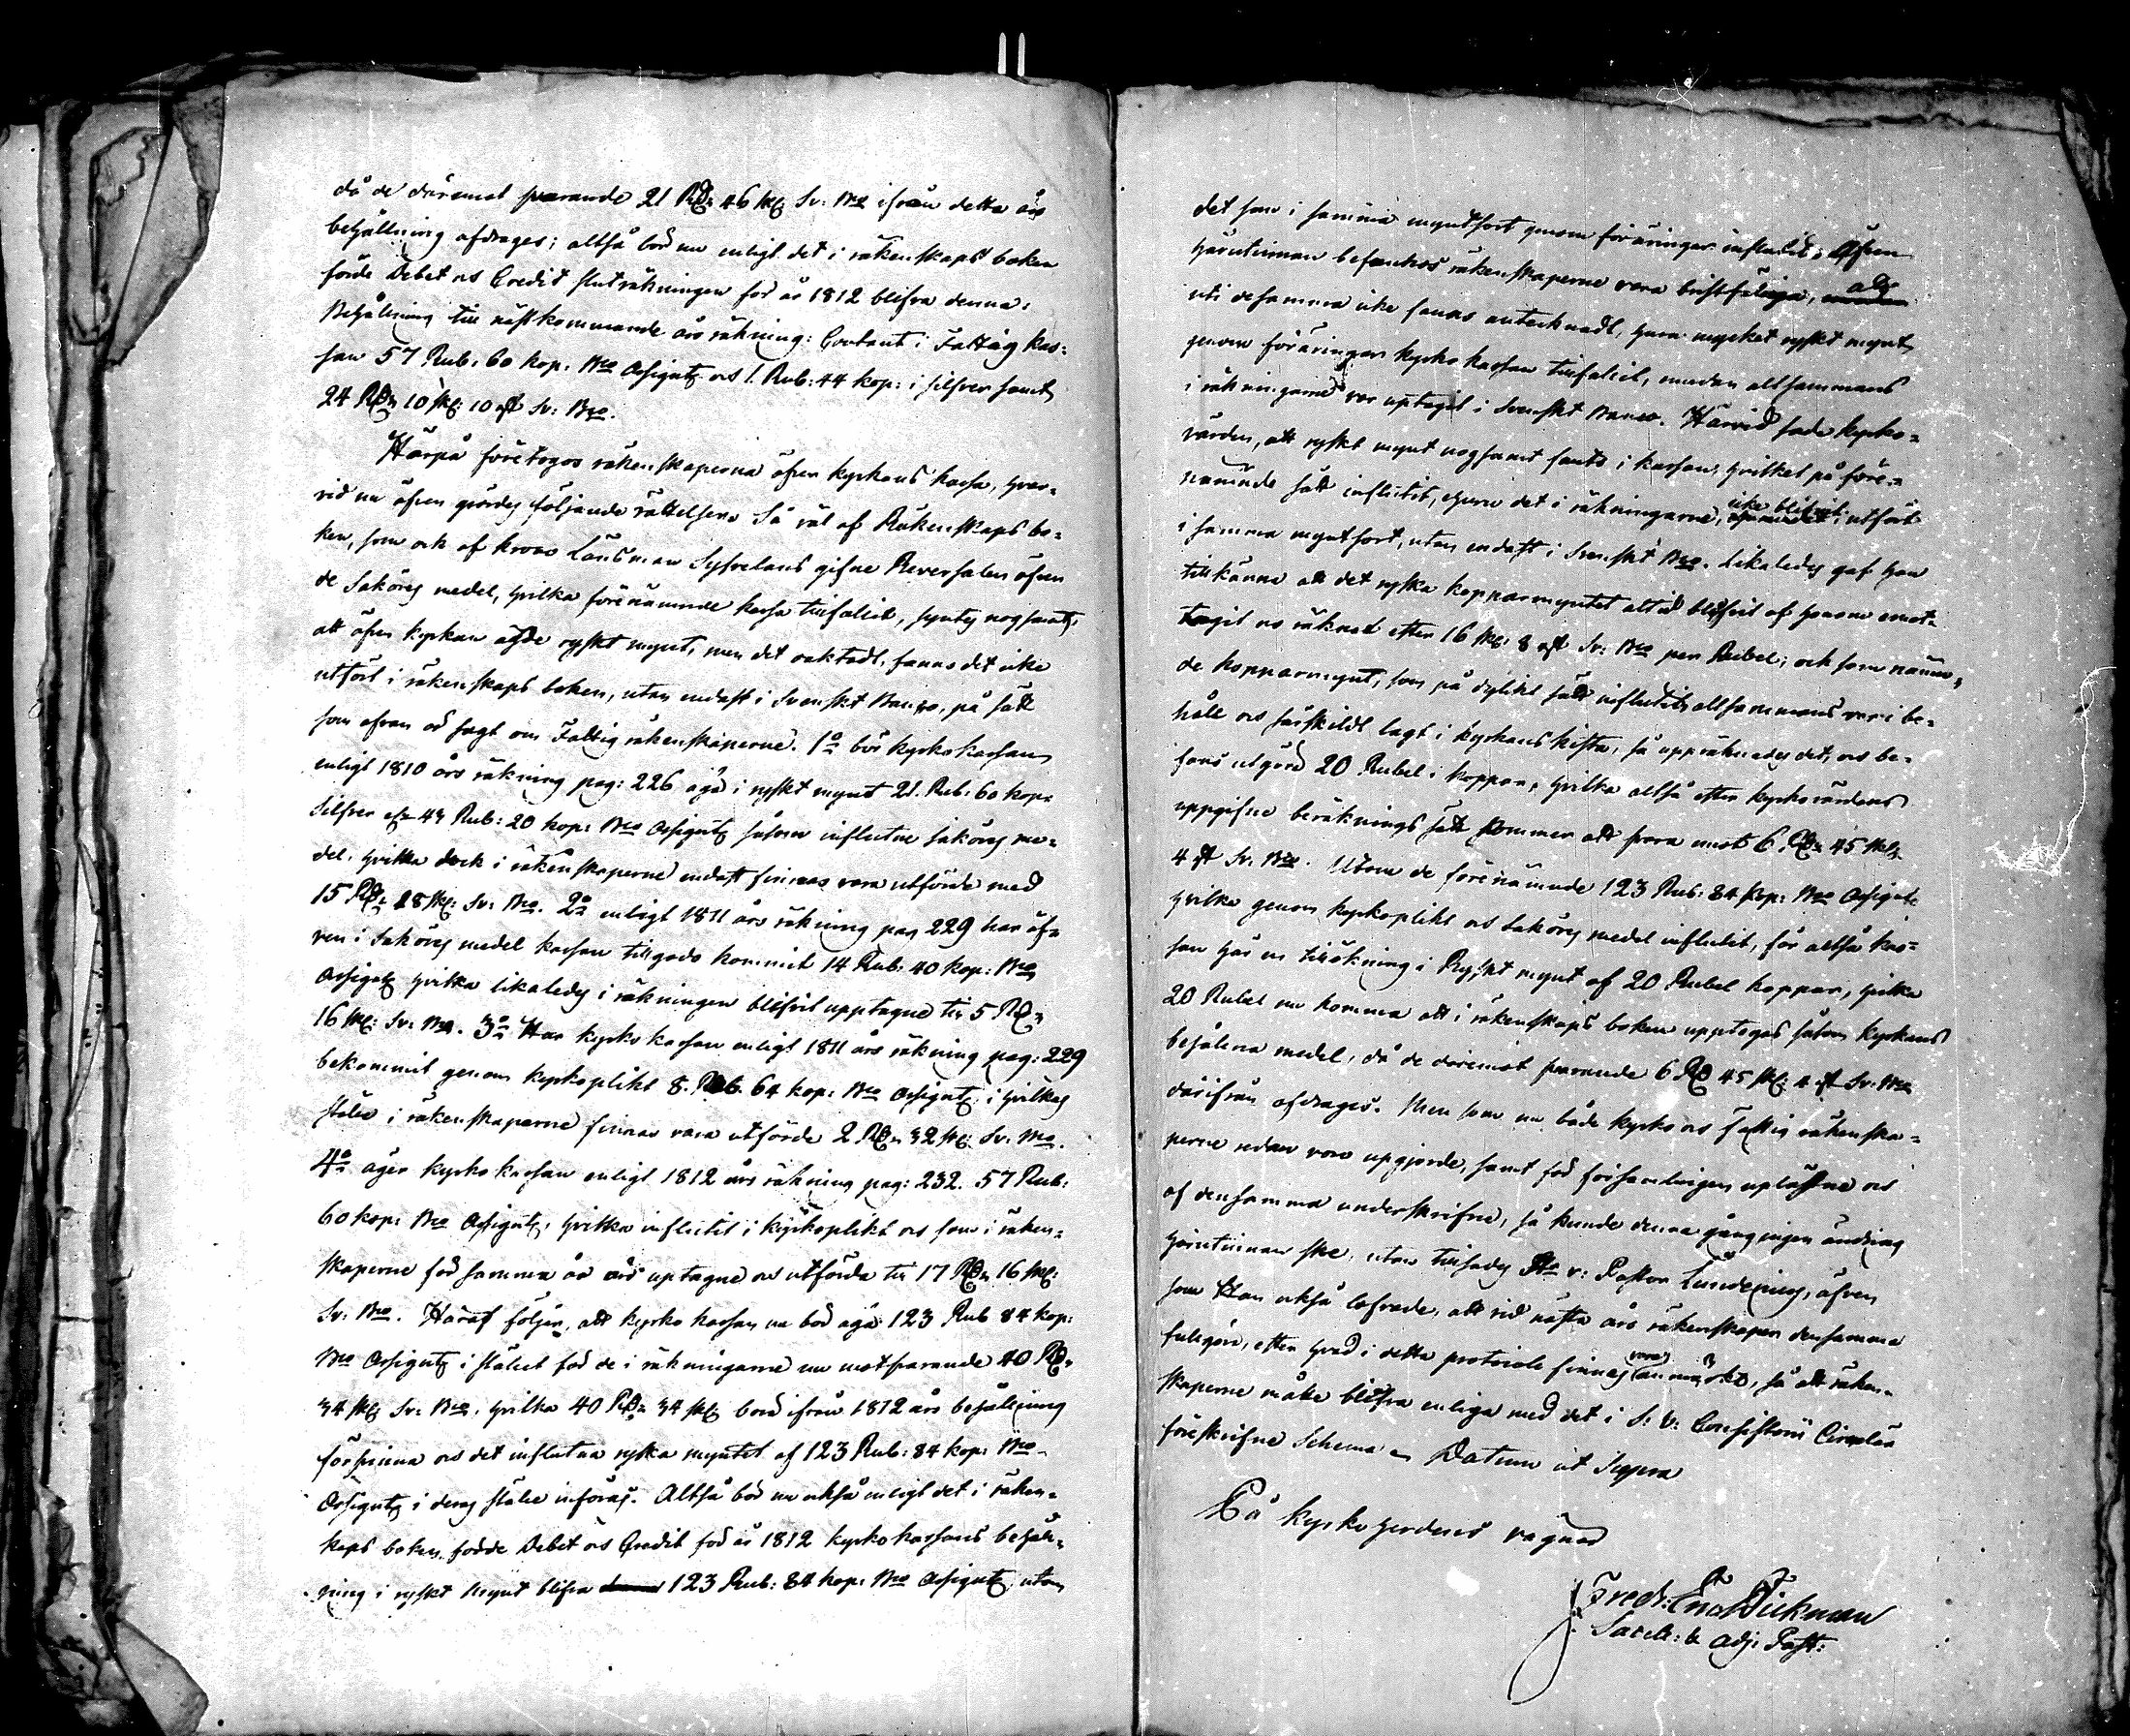 då de däremot svarande 21 Rd: 46 sk: Sv: Bco ifrån detta års
behållning afdrages; altså bör nu enligt det i räkenskaps boken
förde Debet och Credit slut räkningen för år 1812 blifva denna:
Behållning till nästkommande års räkning: Contant i Fattig kas-
san 57 Rub: 60 kop: Bco Assignat: och 1. Rub: 44 kop: i silfver samt
24 Rd: 10 sk: 10 rst Sv: Bco.
Härpå företogos räkenskaperna öfver kyrkans kassa, hvar-
vid nu äfven gjordes följande rättelser. Så väl af Räkenskaps bo-
ken, som ock af krono Länsman gifne Reversalen öfver
de Saköres medel, hvilka förenämnde kassa tillfallit, syntes nogsamt,
att äfven kyrkan ägde ryskt mynt, men det oaktadt, fanns det icke
utfört i räkenskaps boken, utan endast i Svenskt Banco, på sätt
som ofvan är sagt om Fattig räkenskaperne. 1o bör kyrko kassan
enligt 1810 års räkning pag: 226 äga i ryskt mynt 21. Rub: 60 kop:
Silfver eller 43 Rub: 20 kop: Bco Assignat: såsom influtne saköres me-
del, hvilka dock i räkenskaperne endast finnas vara utförde med
15 Rd: 28 sk: Sv: Bco. 2o enligt 1811 års räkning pag 229 har äf-
ven i Saköres medel kassan till godo kommit 14 Rub: 40 kop: Bco
Assignat: hvilka likaledes i räkningen blifvit upptagne till 5 Rd:
16 sk: Sv: Bco. 3o Har kyrko kassan enligt 1811 års räkning pag: 229
bekommit genom kyrkoplikt 8. Rub. 64 kop: Bco Assignat: i hvilkas
ställe i räkenskaperne finnas vara utförde 2 Rd: 32 sk: Sv: Bco.
4o äger kyrko kassan enligt 1812 års räkning pag: 232. 57 Rub:
60 kop: Bco Assignat: hvilka influtit i kyrkoplikt och som i räken-
skaperne för samma år äro uptagne och utförda till 17 Rd: 16 sk:
Sv: Bco. Häraf följer, att kyrko kassan nu bör äga 123 Rub 84 kop:
Bco Assignat: i stället för de i räkningarne nu motsvarande 40 Rd:
34 sk: Sv: Bco, hvilka 40 Rd: 34 sk: bör ifrån 1812 års behållning
försvinna och det influtna ryska myntet af 123 Rub: 84 kop: Bco
Assignat: i deras ställe införas. Altså bör nu också enligt det i räken-
skaps boken förde Debet och Credit för år 1812 kyrko kassans behåll-
ning i ryskt mynt blifva 123 Rub: 84 kop: Bco Assignat: utom
det som i samma myntsort genom föräringar influtit; Äfven
härutinnan befunnos räkenskaperne vara bristfällige, ady
uti desamma icke fanns antecknadt, huru mycket ryskt mynt
genom föräringar kyrko kassan tillfallit, emedan altsammans
i räkningarne var uptaget i Svenskt Banco. Härvid sade kyrko-
värden, att ryskt mynt nogsamt fants i kassan, hvilket på före-
nämnde sätt influtit, ehuru det i räkningarne, icke blifvit utfört
i samma myntsort, utan endast i Svenskt Bco. Likaledes gaf han
tillkänna att det ryska kopparmyntet altid blifvit af honom emot-
tagit och räknat efter 16 sk: 8 rst Sv: Bco per Rubel; och som nämn-
de kopparmynt, som på dylikt sätt influtit, altsammans var i be-
håll och särskildt lagt i kyrkans kista, så uppräknades det, och be-
fans utgöra 20 Rubel i koppar, hvilka altså efter kyrkovärdens
uppgifne beräknings sätt kommer att svara emot 6 Rd: 45 sk:
4 rst Sv: Bco. Utom de förenämnde 123 Rub: 84 kop: Bco Assignat:
hvilka genom kyrkoplikt och Saköres medel influtit, får altså kas-
san här en tillökning i Ryskt mynt af 20 Rubel koppar, hvilka
20 Rubel nu komma att i räkenskaps boken upptagas såsom kyrkans
behållna medel, då de däremot svarande 6 Rd 45 sk: 4 rst Sv: Bco
därifrån afdrages. Men som nu både kyrko och Fattig räkenska-
perne redan voro upgjorde, samt för församlingen upläsne och
af densamma underskrifne, så kunde denna gång ingen ändring
härutinnan ske, utan tillsades v: Pastor äfven
som Han också lofvade, att vid nästa års räkenskaper densamma
fullgöra, efter hvad i detta protocoll finnes vara anmärkt, så att räken-
skaperne måtte blifva enliga med det i S: V: Consistorii Circulär
föreskrifne Schema. Datum ut Supra
På kyrko herdens vägnar
Fred: Eric Wickman
Sacell: & adj: Past: